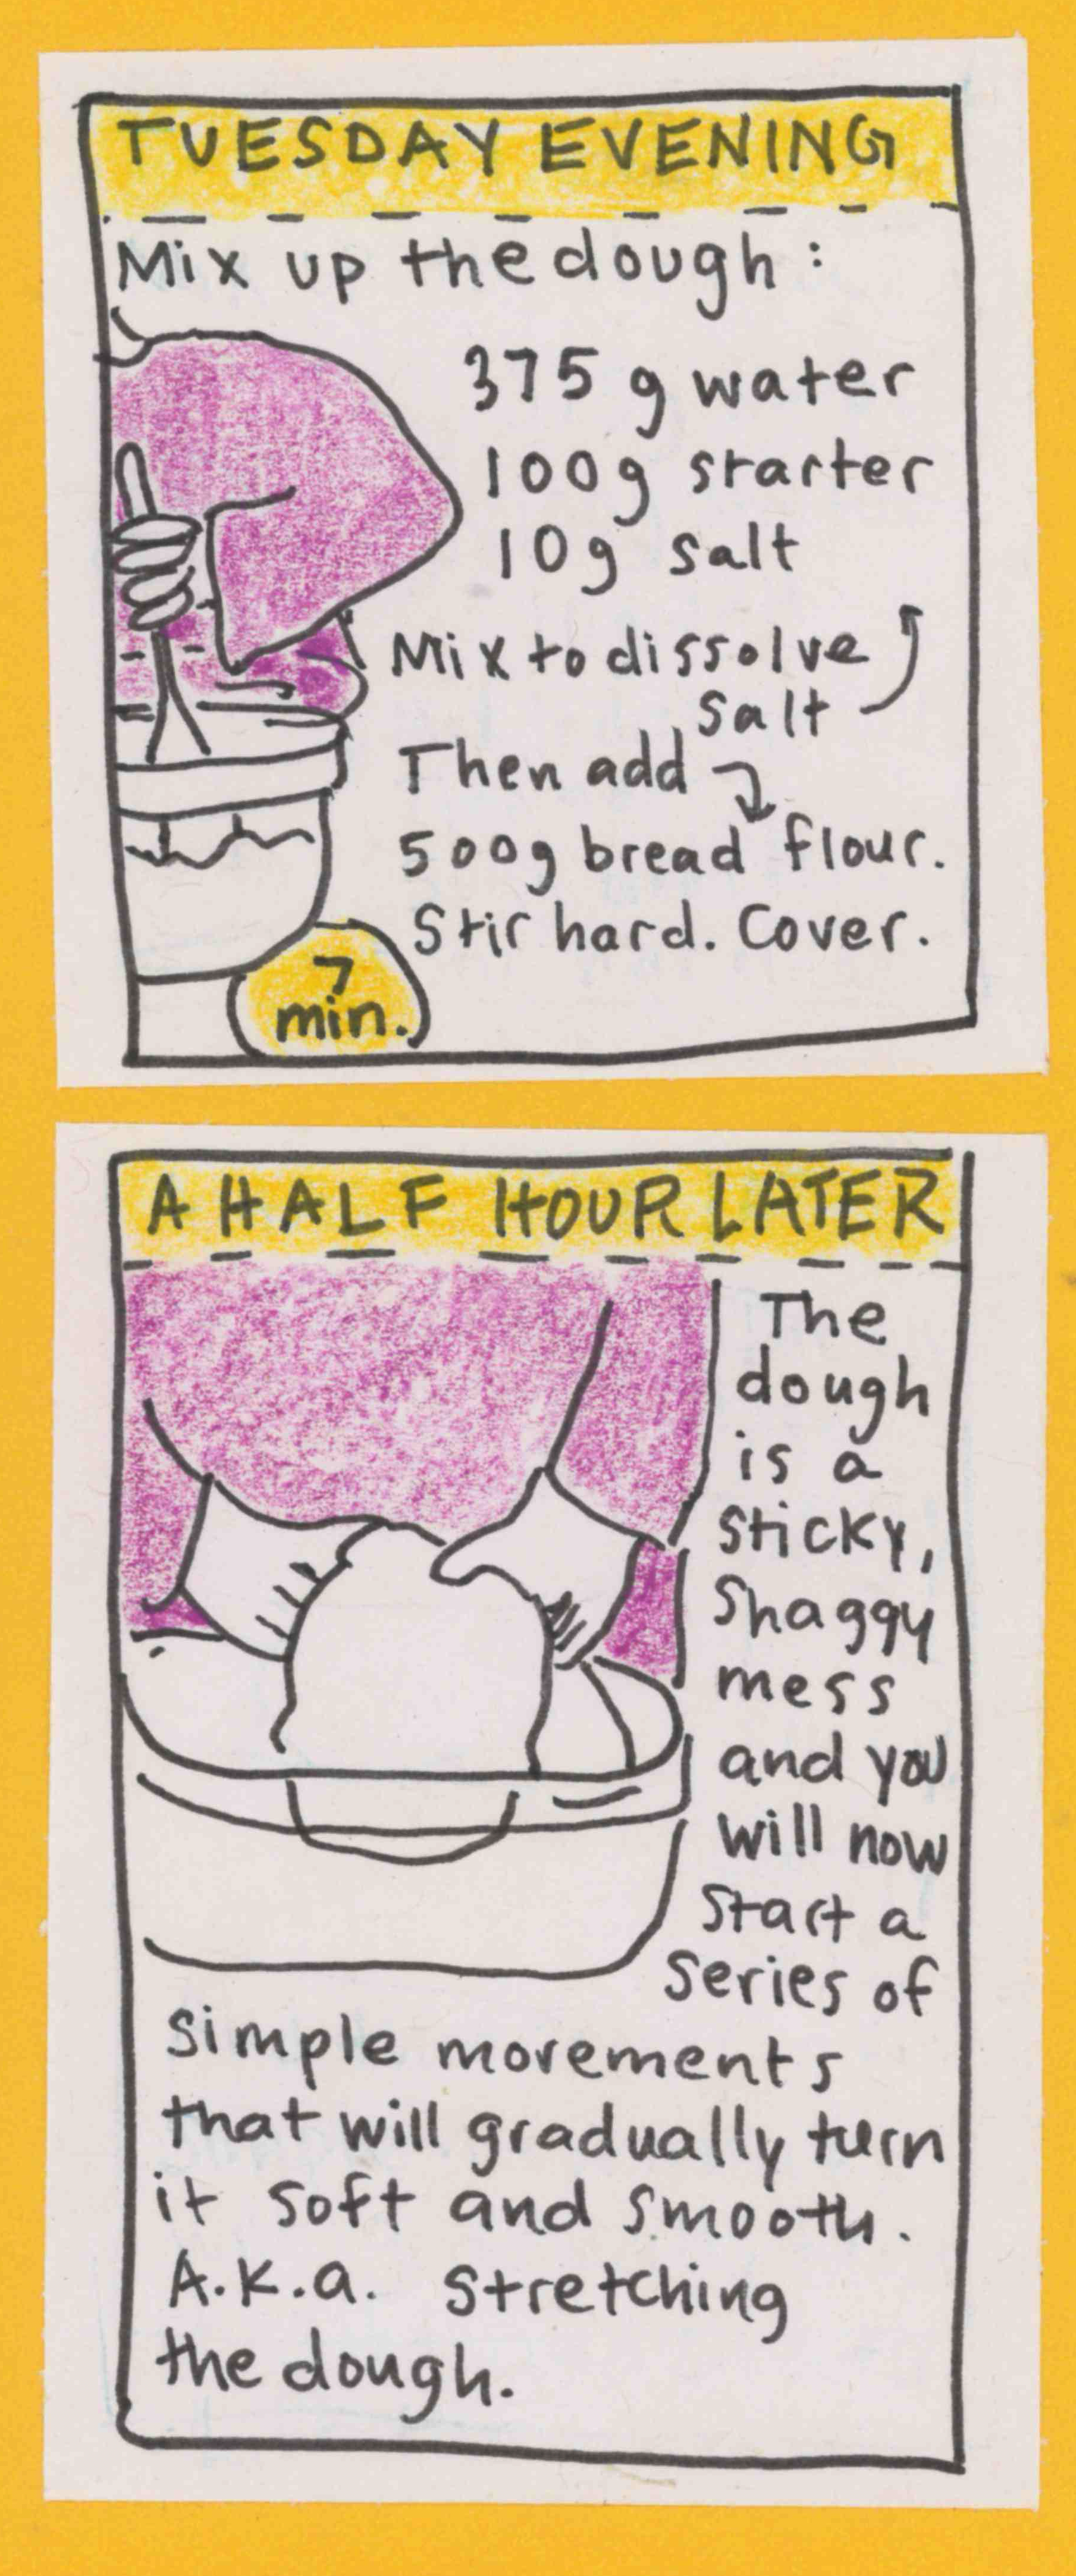 TUESDAY EVENING
Mix up the dough:
375 g water
100g starter
10g salt
Mix to dissolve
salt
Then add
500g bread flour.
Stir hard. Cover.
7
min.
A HALF HOUR LATER
The
dough
is a
sticky,
shaggy
mess
and you
will now
start a
series of
simple movements
that will gradually turn
it soft and smooth.
A.K.a. stretching
the dough.